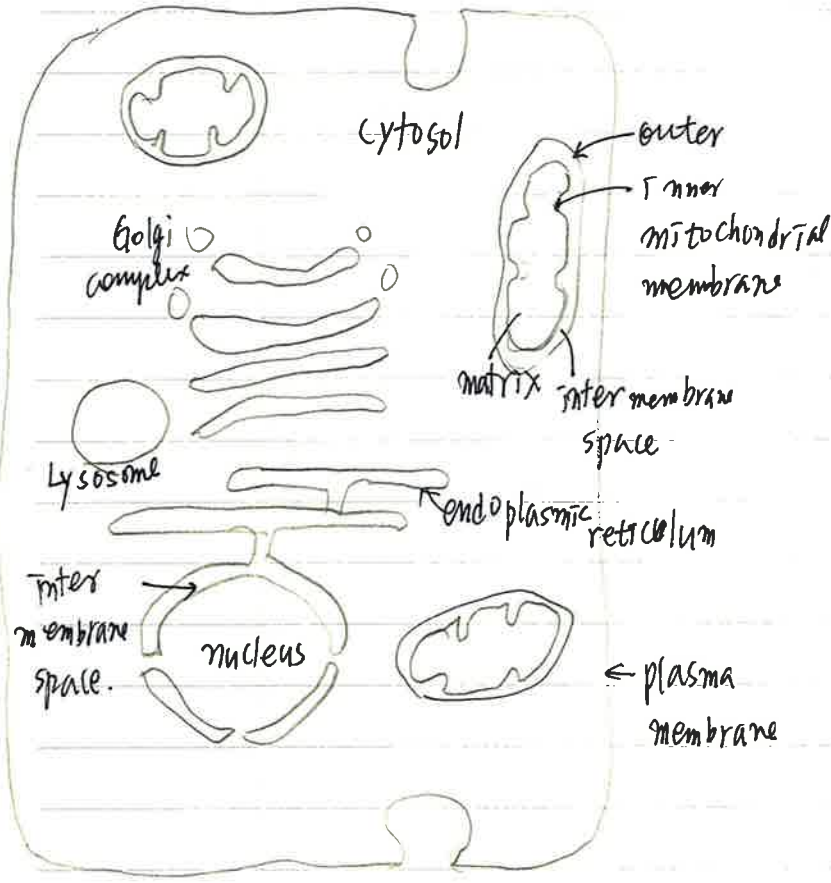 cytosol
outer
inner
mitochondrial
membrane
Golgi
complex
matrix
inter membrane
space
Lysosome
endoplasmic
reticulum
inter
membrane
space.
nucleus
plasma
membrane